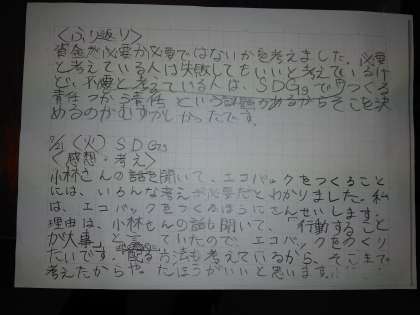 〈ふり返り〉
資金が必要か必要ではないかを考えました。必要
と考えている人は失敗してもいいと考えているけ
ど、不要と考ている人は、SDGsで「つくる
責任つかう責任」という課題があるからそこを決
めるのがむずかしかったです。
9/21(火)SDGs
〈感想・考え〉
小林さんの話を聞いて、エコバックをつくること
には、いろんな考えが必要だとわかりました。私
は、エコバックをつくるほうにさんせいします。
理由は、小林さんの話も聞いて、「行動すること
が大事」と言っていたので、エコバックをつくり
たいです。配る方法も考えているから、そこまで
考えたからや。たほうがいいと思います。